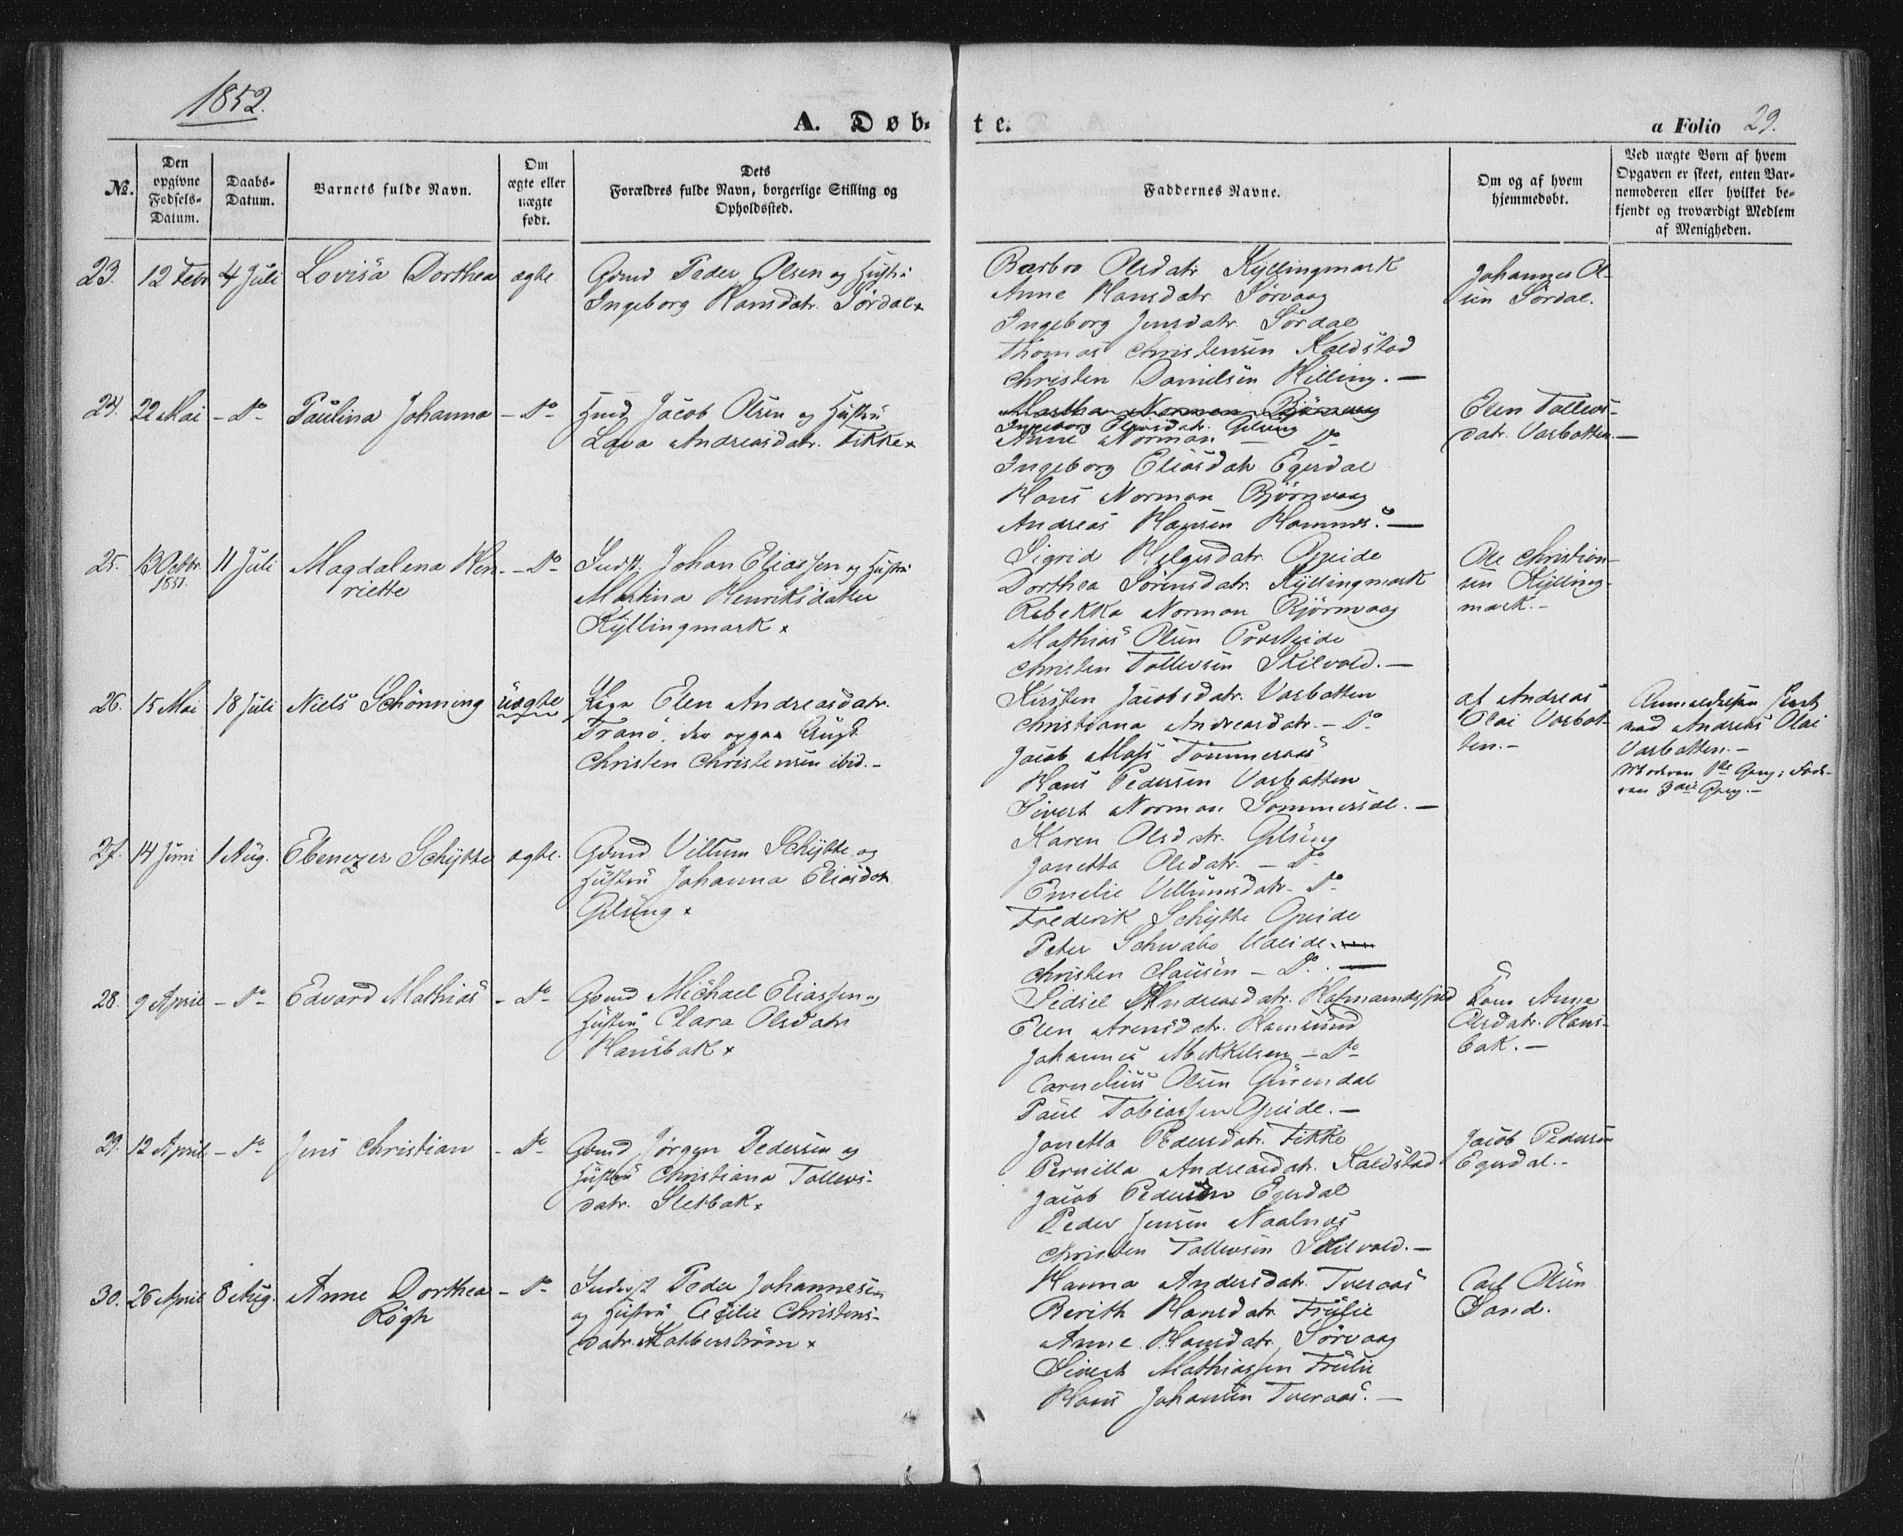 1852.
A. Døb-
te.
a Folio 29.
No.
Den opgivne Fødsels-Datum.
Daabs-Datum.
Barnets fulde Navn.
Om ægte eller uægte født.
Dets Forældres fulde Navn, borgerlige Stilling og Opholdssted.
Faddernes Navne.
Om og af hvem hjemmedøbt.
Ved uægte Børn af hvem Opgaven er skeet, enten Barnemoderen eller hvilket bekjendt og troværdigt Medlem af Menigheden.
23. 12 Febr 4 Juli Lovisa Dorthea ægte.
Gdmd Peder Olsen og Hustru
Ingeborg Hansdatr. Sørdal
Barbro Olsdatr Kyllingmark
Anne Hansdatr. Sørvaag
Ingeborg Jensdatr Sørdal
Thomas Christensen Kaldstad
Christen Danielsen Hilling. —
Johannes Ol-
sen Sørdal.
24. 22 Mai - Do - Paulina Johanna - Do -
Hmd Jacob Olsen og Hustru
Lava Andreasdatr. Fikke
Martha Norman Bjørnvaag
Ingeborg Eliasdatr. Gilsung
Anne Norman — Do
Ingeborg Eliasdatr Egerdal
Hans Norman Bjørnvaag
Andreas Hansen Hamnes. —
Elen Tollevs-
datr. Varbotten. —
25. 13 Octbr. 1851. 11 Juli Magdalena Hen-
riette - Do -
Indst. Johan Eliassen og Hustru
Martina Henriksdatter
Kyllingmark
Sigrid Helgesdatr. Opeide
Dorthea Sørensdatr. Kyllingmark
Rebekka Norman Bjørnvaag
Mathias Olsen Presteide
Christen Tollevsen Skilvold. —
Ole Christian-
sen Kylling-
mark. -
26. 15 Mai 18 Juli Niels Schønning uægte
Pige Elen Andreasdatr.
Tranø, der opgav Ungk.
Christen Christensen ibid. -
Kirsten Jacobsdatr. Varbotten
Christiana Andreasdatr. - Do -
Jacob Moss Tømmeraas
Hans Pedersen Varbotten
Sivert Norman Sommersæl. —
af Andreas
Olai Varbot-
ten. -
Anmeldelsen skeet
ved Andreas Olai
Varbotten. -
Moderen 1ste Gang; Fade-
ren 3die Gang. -
27. 14 Juni 1 Aug. Ebenezer Schytte ægte.
Gdmd Villum Schytte og
Hustru Johanna Eliasdatr
Gilsung
Karen Olsdatr. Gilsung
Janetta Olsdatr. — Do
Emelie Villumsdatr - Do -
Frederik Schytte Opeide
Peter Schwabe Ualeide.
Christen Clausen - Do. —
28. 9 April - Do - Edvard Mathias - Do -
Gdmd Michael Eliassen og
Hustru Clara Olsdatr
Hansbak
Sidsel Andreasdatr. Hafmandsfjord
Elen Arensdatr. Hamsund
Johannes Mikkelsen - Do -
Cornelius Olsen Grøndal
Paul Tobiassen Opeide. —
Kone Anne
Olsdatr. Hans-
bak. —
29. 12 April - Do - Jens Christian - Do -
Gdmd Jørgen Pedersen og
Hustru Christiana Tollevs-
datr. Sletbak
Janetta Pedersdatr. Fikke
Pernilla Andreasdatr. Kaldstad
Jacob Pedersen Egerdal
Peder Jensen Naalnæs
Christen Tollevsen Skilvold. —
Jacob Pedersen
Egerdal. -
30. 26 April 8 Aug. Anne Dorthea
Røgh - Do -
Inderst Peder Johannesen
og Hustru Cecilie Christens-
datr. Kobberstrøm
Hanna Andersdatr. Tveraas
Berith Hansdatr. Frulie
Anne Hansdatr. Sørvaag
Sivert Mathiassen Frulie
Hans Johansen Tveraas. —
Carl Olsen
Sand.